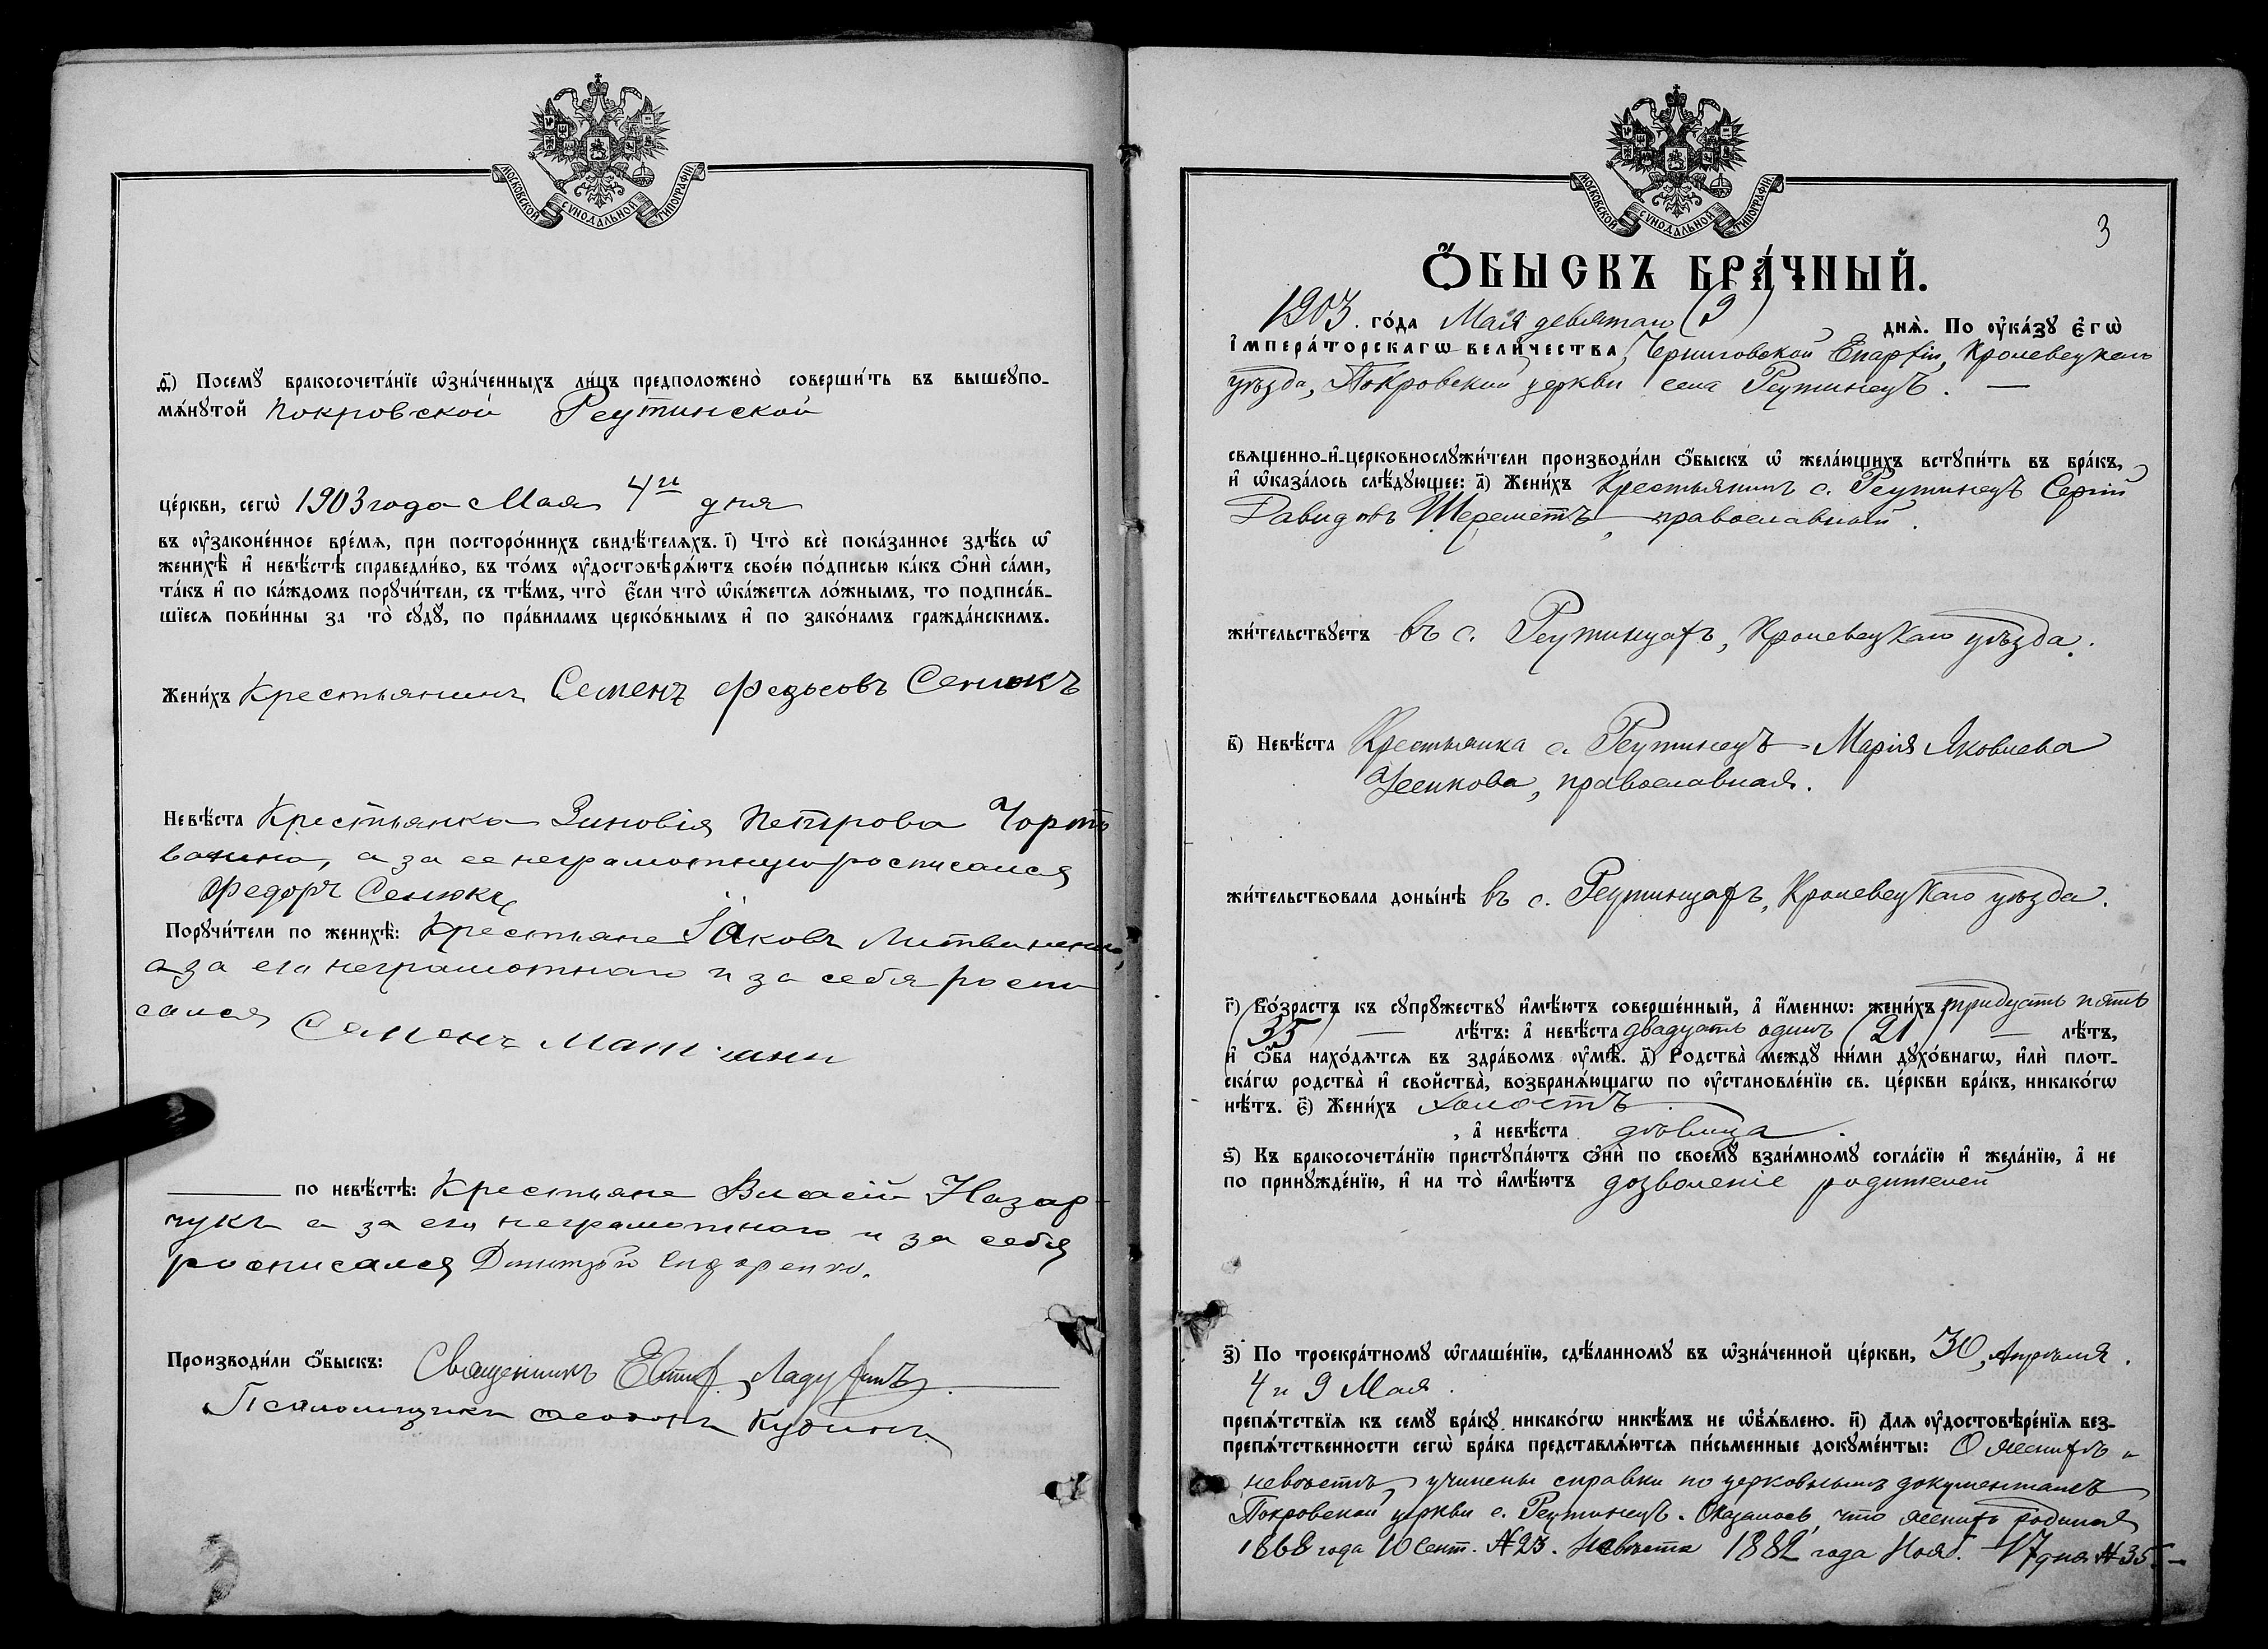 МОСКОВСКОЙ СѴНОДАЛЬНОЙ ТИПОГРАФІИ.
д҃і) Посемꙋ бракосочета́нїе ѡ҆зна́ченныхъ ли́цъ предположено̀ соверши́ть въ вышеꙋпо-
мѧ́нꙋтой Покровской Реутинской
це́ркви, сегѡ̀ 1903 года Мая 4го дня
въ ᲂу҆законе́нное вре́мѧ, при посторо́ннихъ свидѣ́телѧхъ. і҃) Что̀ всѐ пока́занное здѣ́сь ѡ҆
женихѣ̀ и҆ невѣ́стѣ справедли́во, въ то́мъ ᲂу҆достовѣрѧ́ютъ свое́ю по́дписью ка́къ ѻ҆нѝ са́ми,
та́къ и҆ по ка́ждомъ порꙋчи́тели, съ тѣ́мъ, что̀ є҆́сли что̀ ѡ҆ка́жетсѧ ло́жнымъ, то подписа́в-
шїесѧ пови́нны за то̀ сꙋдꙋ, по пра́виламъ церко́внымъ и҆ по зако́намъ гражда́нскимъ.
Жени́хъ Крестьянинъ Семенъ Федьсовъ Сенюкъ
Невѣ́ста Крестьянка Зиновія Петрова
а за ее неграмотную росписался
Федоръ Сенюкъ
Порꙋчи́тели по женихѣ̀: Крестьяне Іаковъ Литвиненко,
а за его неграмотнаго и за себя роспи
сался Семенъ
по невѣ́стѣ: Крестьяне Власій Назар-
чукъ а за его неграмотнаго и за себя
росписался Димитрій Сидоренко.
Производи́ли ѻ҆́быскъ: Священникъ
Псаломщикъ Кудинъ
МОСКОВСКОЙ СѴНОДАЛЬНОЙ ТИПОГРАФІИ.
3
Ѻ҆́БЫСКЪ БРА́ЧНЫЙ.
1903. го́да Мая девятаго (9) днѧ̀. По ᲂу҆ка́зꙋ є҆гѡ̀
і҆мпера́торскагѡ вели́чества, Черниговской Епархіи, Кролевецкаго
уѣзда, Покровской церкви села Реутинецъ. —
свѧщенно-и҆-церковнослꙋжи́тели производи́ли ѻ҆́быскъ ѡ҆ жела́ющихъ встꙋпи́ть въ бра́къ,
и҆ ѡ҆каза́лось слѣ́дꙋющее: а҃) Жени́хъ Крестьянинъ с. Реутинецъ Сергій
Давидовъ Шереметъ, православный.
жи́тельствꙋетъ въ с. Реутинцахъ, Кролевецкаго уѣзда.
в҃) Невѣ́ста Крестьянка с. Реутинецъ Марія Яковлева
Усикова, православная.
жи́тельствовала доны́нѣ въ с. Реутинцахъ, Кролевецкаго уѣзда.
г҃) Во́зрастъ къ сꙋпрꙋжествꙋ и҆мѣ́ютъ соверше́нный, а҆ и҆́меннѡ: жени́хъ тридцать пять
(35) — лѣ́тъ: а҆ невѣ́ста двадцать одинъ (21) — лѣ́тъ,
и҆ ѻ҆́ба нахо́дѧтсѧ въ здра́вомъ ᲂу҆мѣ̀. д҃) Родства̀ междꙋ ни́ми дꙋхо́внагѡ, и҆лѝ плот-
ска́гѡ родства̀ и҆ свойства̀, возбранѧ́ющагѡ по ᲂу҆становле́нїю св. це́ркви бра́къ, никако́гѡ
нѣ́тъ. є҃) Жени́хъ холостъ
, а҆ невѣ́ста дѣвица.
ѕ҃) Къ бракосочета́нїю пристꙋпа́ютъ ѻ҆нѝ по своемꙋ̀ взаи́мномꙋ согла́сїю и҆ жела́нїю, а҆ не
по принꙋжде́нїю, и҆ на то̀ и҆мѣ́ютъ дозволеніе родителей
з҃) По троекра́тномꙋ ѡ҆глаше́нїю, сдѣ́ланномꙋ въ ѡ҆зна́ченной це́ркви, 30, Апрѣля.
4 и 9 Мая.
препѧ́тствїѧ къ семꙋ̀ бра́кꙋ никако́гѡ никѣ́мъ не ѡ҆б̾ѧ́влено. и҃) Длѧ ᲂу҆достовѣре́нїѧ без-
препѧ́тственности сегѡ̀ бра́ка представлѧ́ютсѧ пи́сьменные докꙋме́нты: О женихѣ и
невѣстѣ, учинены справки по церковнымъ документамъ
Покровской церкви с. Реутинецъ. Оказалось, что женихъ родился
1868 года 10 Сент. №23. Невѣста 1882 года Нояб. 17 дня №35. —